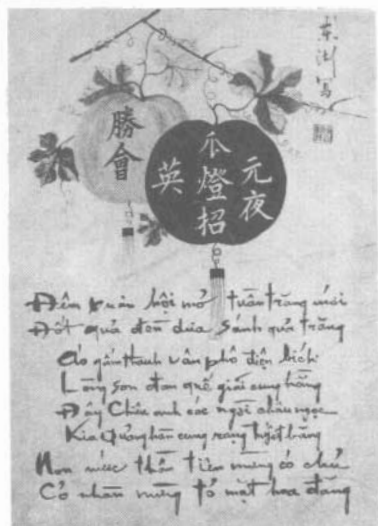 東湖寫
元夜
瓜燈招
英
勝會
Đêm xuân hội mở tuần trăng mới
Đốt quả đèn dưa sánh quả trăng
Áo gấm thanh vân phô điện bích
Lồng son đan quế giãi cung hằng
Đây Chiêu anh các ngời châu ngọc
Kia Quảng hàn cung rạng tuyết băng
Non nước thần tiên mừng có chủ
Cố nhân mừng tỏ mặt hoa đăng